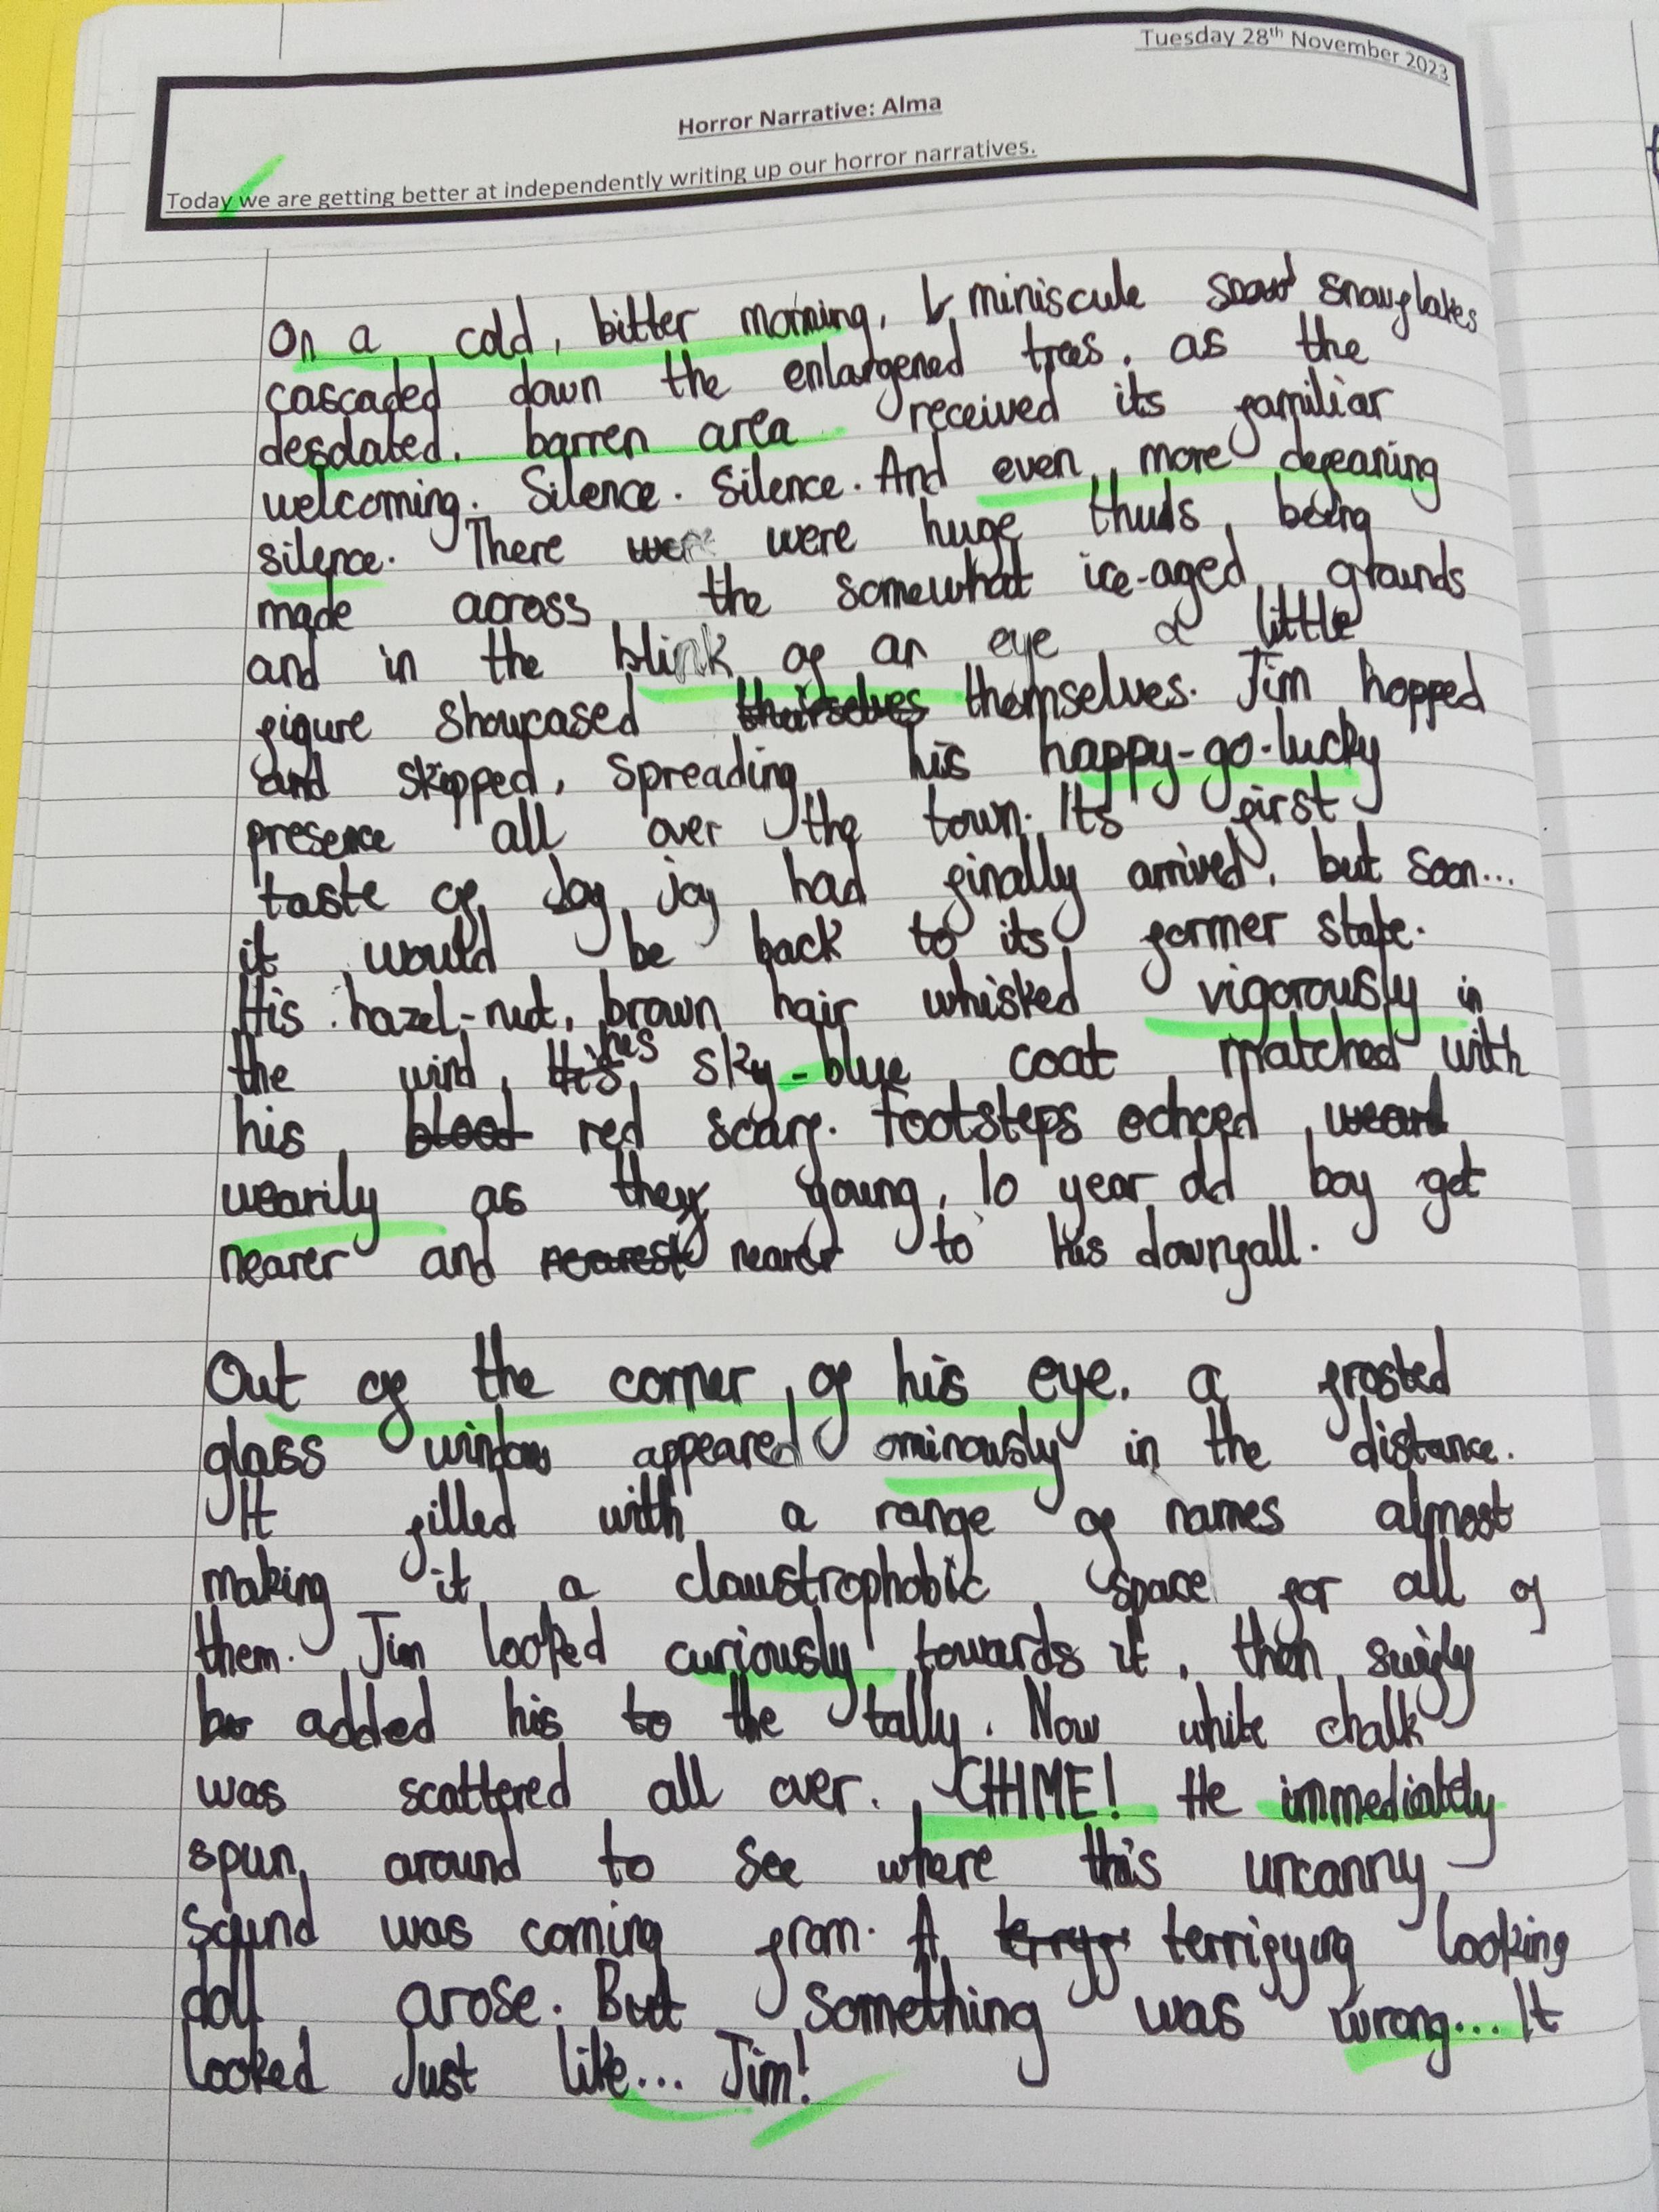 Tuesday 28th November 2023
Horror Narrative: Alma
Today we are getting better at independently writing up our horror narratives.
On a cold, bitter morning, miniscule snowflakes
cascaded down the enlargened trees, as the
desolated, barren area received its familiar
welcoming. Silence. Silence. And even more defeaning
silence. There were were huge thuds, being
made across the somewhat ice-aged grounds
and in the blink of an eye a little
figure showcased theirselves themselves. Jim hopped
and skipped, spreading his happy-go-lucky
presence all over the town. Its first
taste of Joy joy had finally arrived, but soon...
it would be back to its former state.
His hazel-nut, brown hair whisked vigorously in
the wind, His his sky-blue coat matched with
his blood red scarf. Footsteps echoed
wearily as they young, 10 year old boy got
nearer and nearest nearer to his downfall.
Out of the corner of his eye, a frosted
glass window appeared ominously in the distance.
It filled with a range of names almost
making it a claustrophobic space for all of
them. Jim looked curiously towards it, then swifly
added his to the tally. Now white chalk
was scattered all over. CHIME! He immediately
spun around to see where this uncanny
sound was coming from. A terrifying looking
doll arose. But something was wrong... It
looked Just like... Jim!